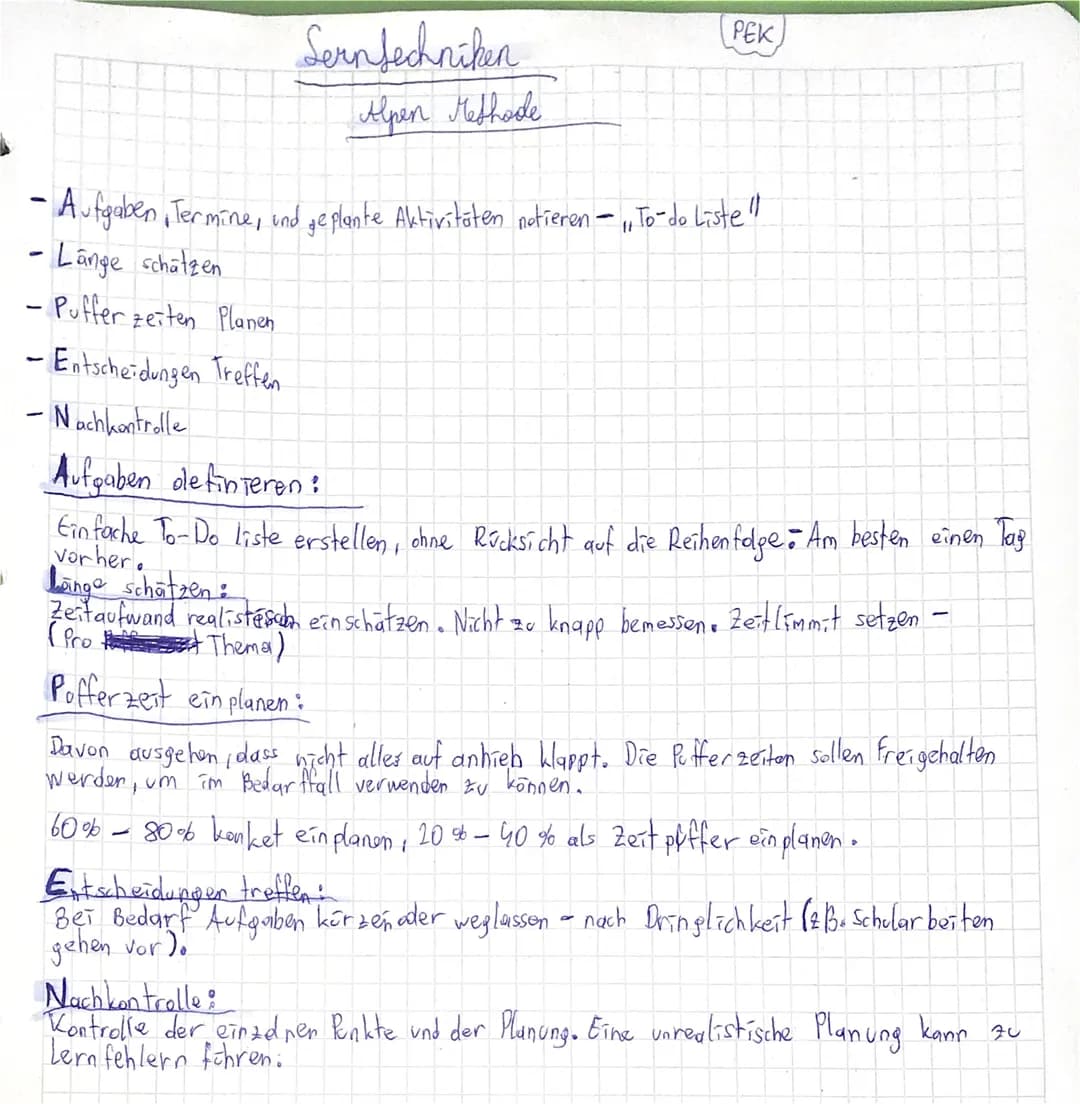 PEK
Lerntechniken
Alpen Methode
- Aufgaben, Termine, und geplante Aktivitäten notieren - „To-do Liste"
- Länge schätzen
- Pufferzeiten Planen
- Entscheidungen Treffen
- Nachkontrolle
Aufgaben definieren:
Einfache To-Do liste erstellen, ohne Rücksicht auf die Reihenfolge - Am besten einen Tag
vorher.
Länge schätzen:
Zeitaufwand realistisch einschätzen. Nicht zu knapp bemessen. Zeitlimmit setzen -
(Pro Thema)
Pufferzeit einplanen:
Davon ausgehen, dass nicht alles auf anhieb klappt. Die Pufferzeiten sollen freigehalten
werden, um im Bedarffall verwenden zu können.
60% - 80% konket einplanen, 20% - 40% als Zeitpuffer einplanen.
Entscheidungen treffen:
Bei Bedarf Aufgaben kürzen oder weglassen - nach Dringlichkeit (zB. Schularbeiten
gehen vor).
Nachkontrolle:
Kontrolle der einzelnen Punkte und der Planung. Eine unrealistische Planung kann zu
Lernfehlern führen.